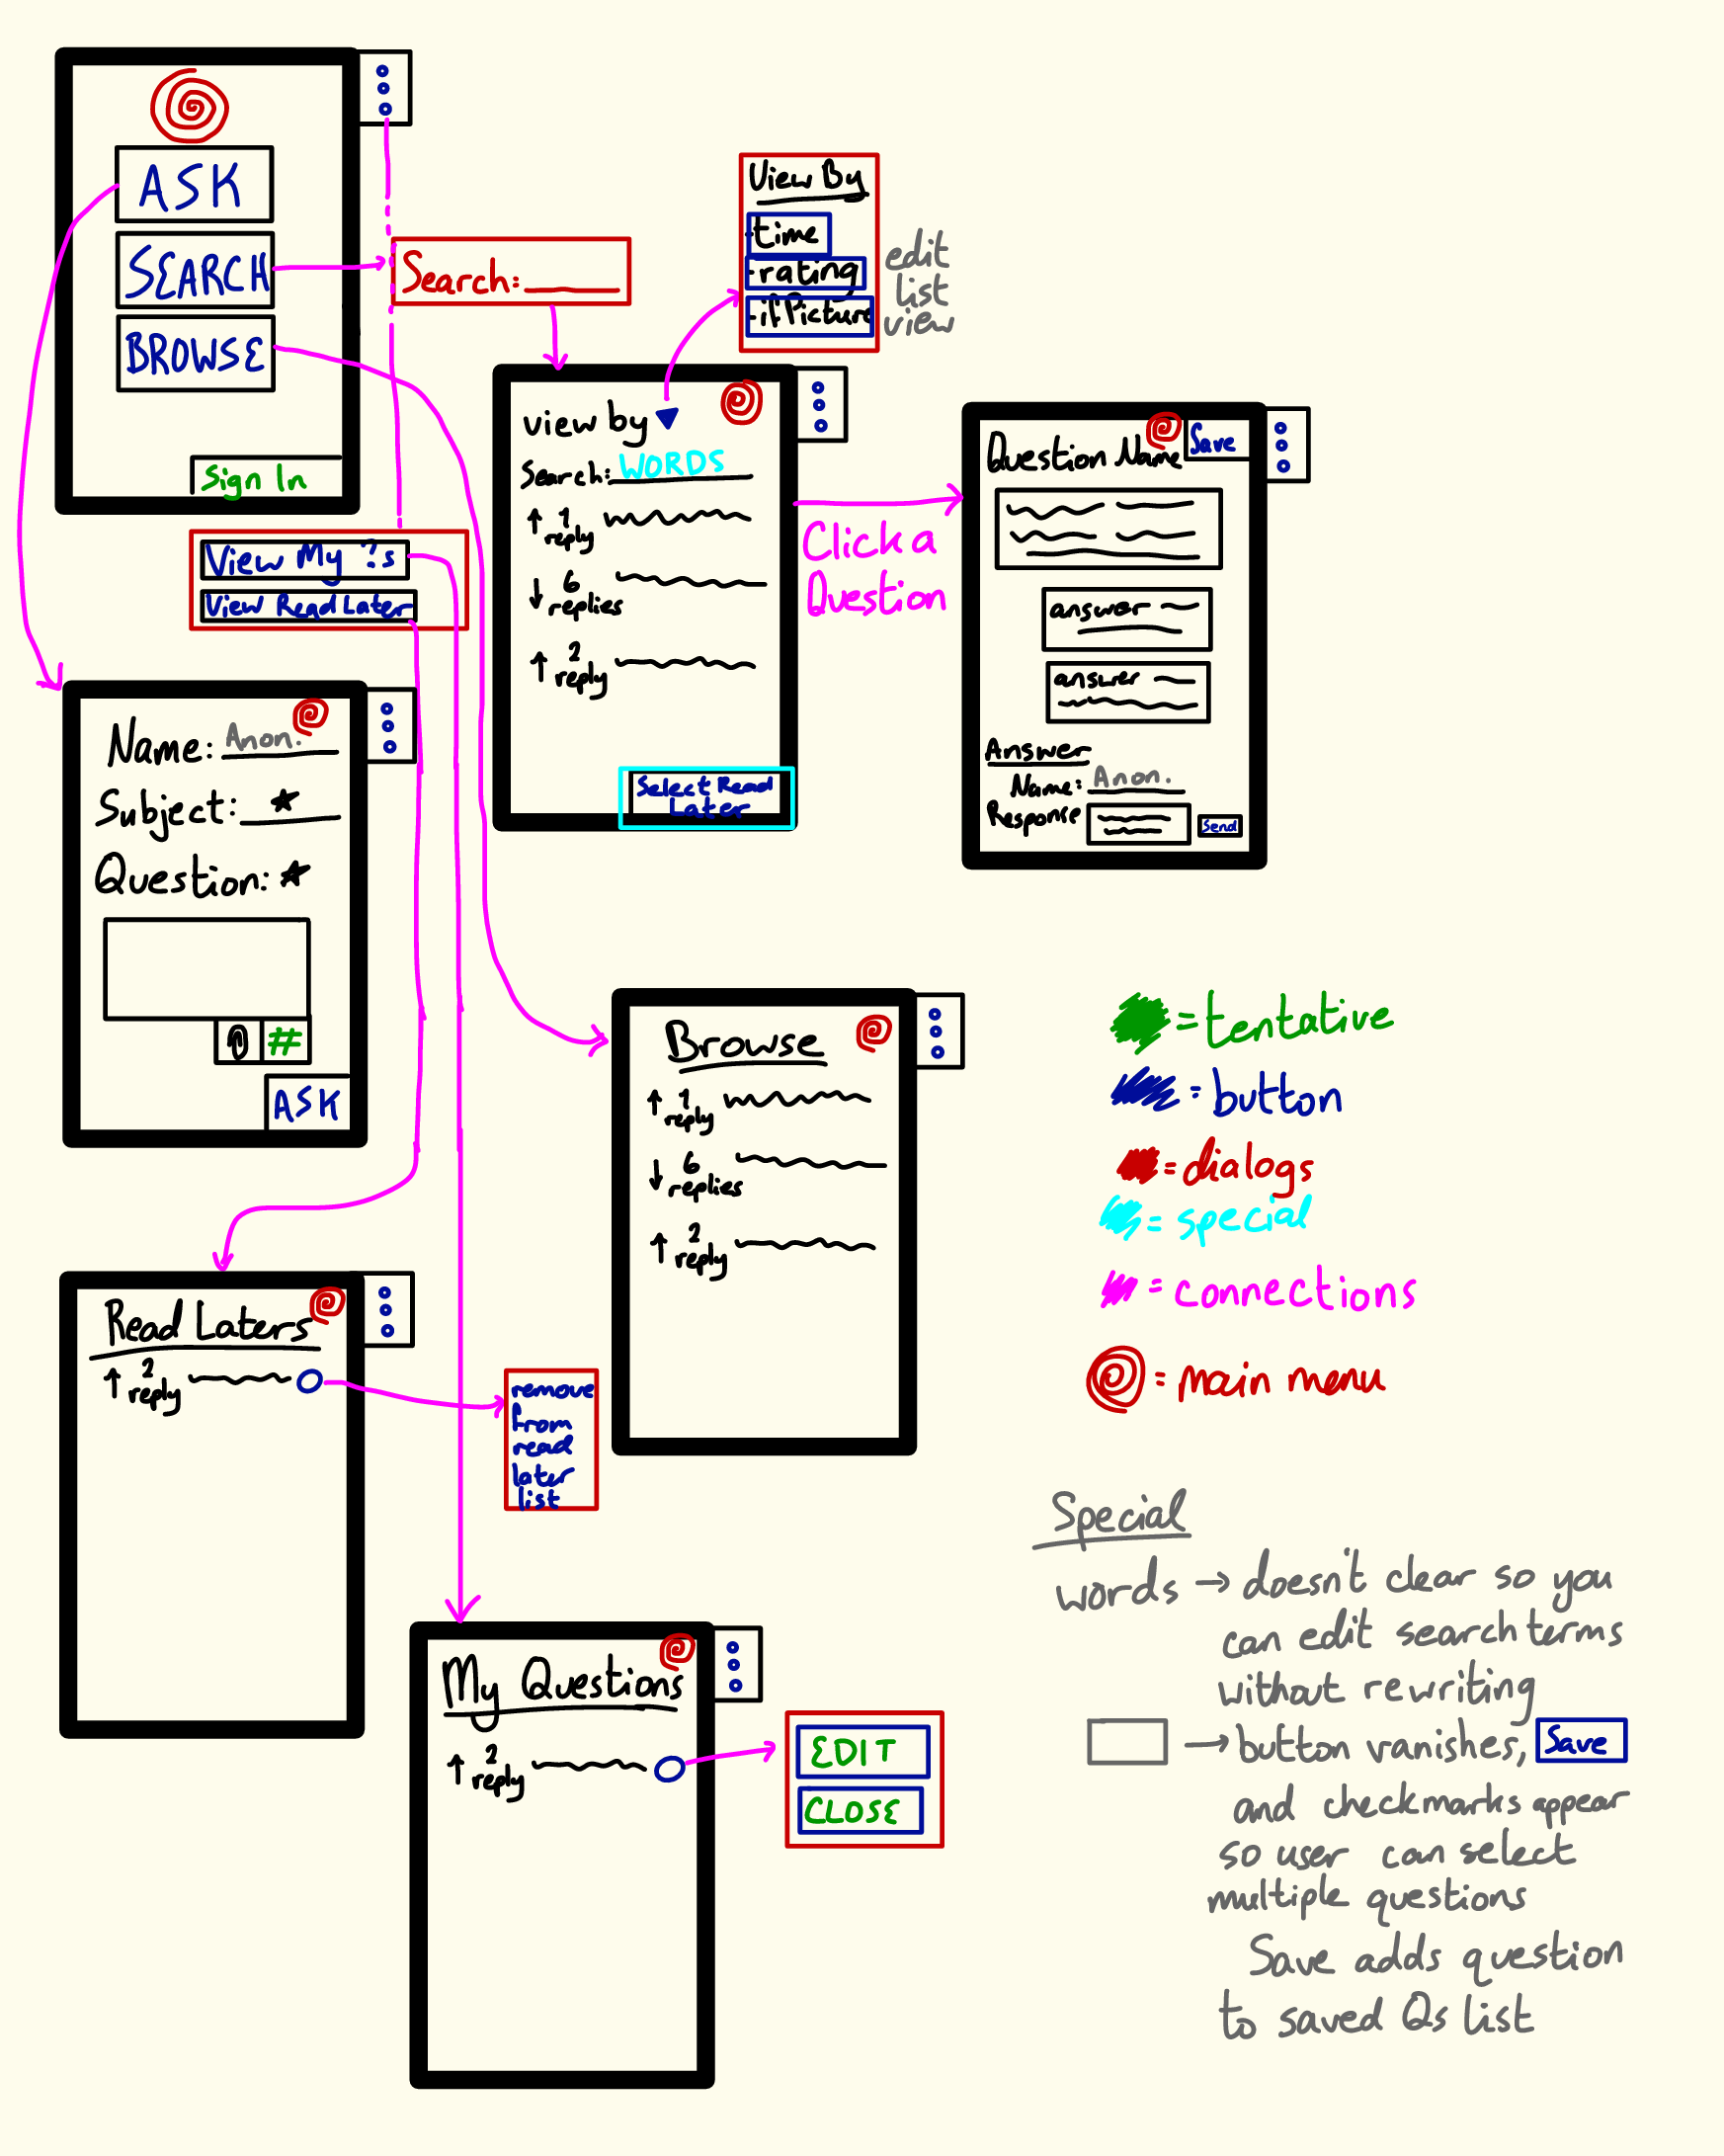 ASK
SEARCH
BROWSE
Sign In
Search:
View By
-time
-rating
-if Picture
edit
list
view
View My ?s
View Read Later
view by
Search: WORDS
↑ 1
reply
↓ 6
replies
↑ 2
reply
Select Read
Later
Click a
Question
Question Name
Save
answer
answer
Answer
Name: Anon.
Response
Send
Name: Anon.
Subject: ★
Question: ★
#
ASK
Browse
↑ 1
reply
↓ 6
replies
↑ 2
reply
= tentative
= button
= dialogs
= special
= connections
= main menu
Read Laters
↑ 2
reply
remove
from
read
later
list
My Questions
↑ 2
reply
EDIT
CLOSE
Special
words → doesn't clear so you
can edit search terms
without rewriting
→ button vanishes, Save
and checkmarks appear
so user can select
multiple questions
Save adds question
to saved Qs list